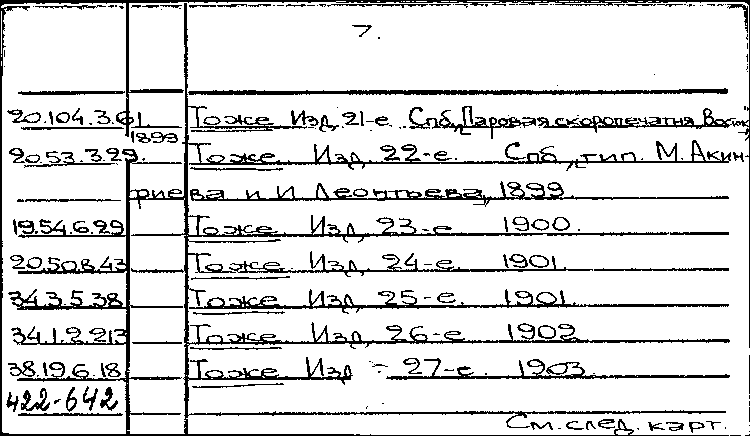 7.
20.104.3.61 Тоже Изд. 21-е. Спб., "Паровая скоропечатня Восток",
1899.
20.53.3.29. Тоже. Изд. 22-е. Спб., тип. М. Акин-
фиева и И. Леонтьева, 1899.
19.54.6.29 Тоже. Изд. 23-е 1900.
20.50.8.43 Тоже. Изд. 24-е. 1901.
34.3.5.38 Тоже. Изд. 25-е. 1901.
34.1.2.213 Тоже. Изд. 26-е 1902
38.19.6.18 Тоже. Изд - 27-е. 1903.
422-642
См. след. карт.